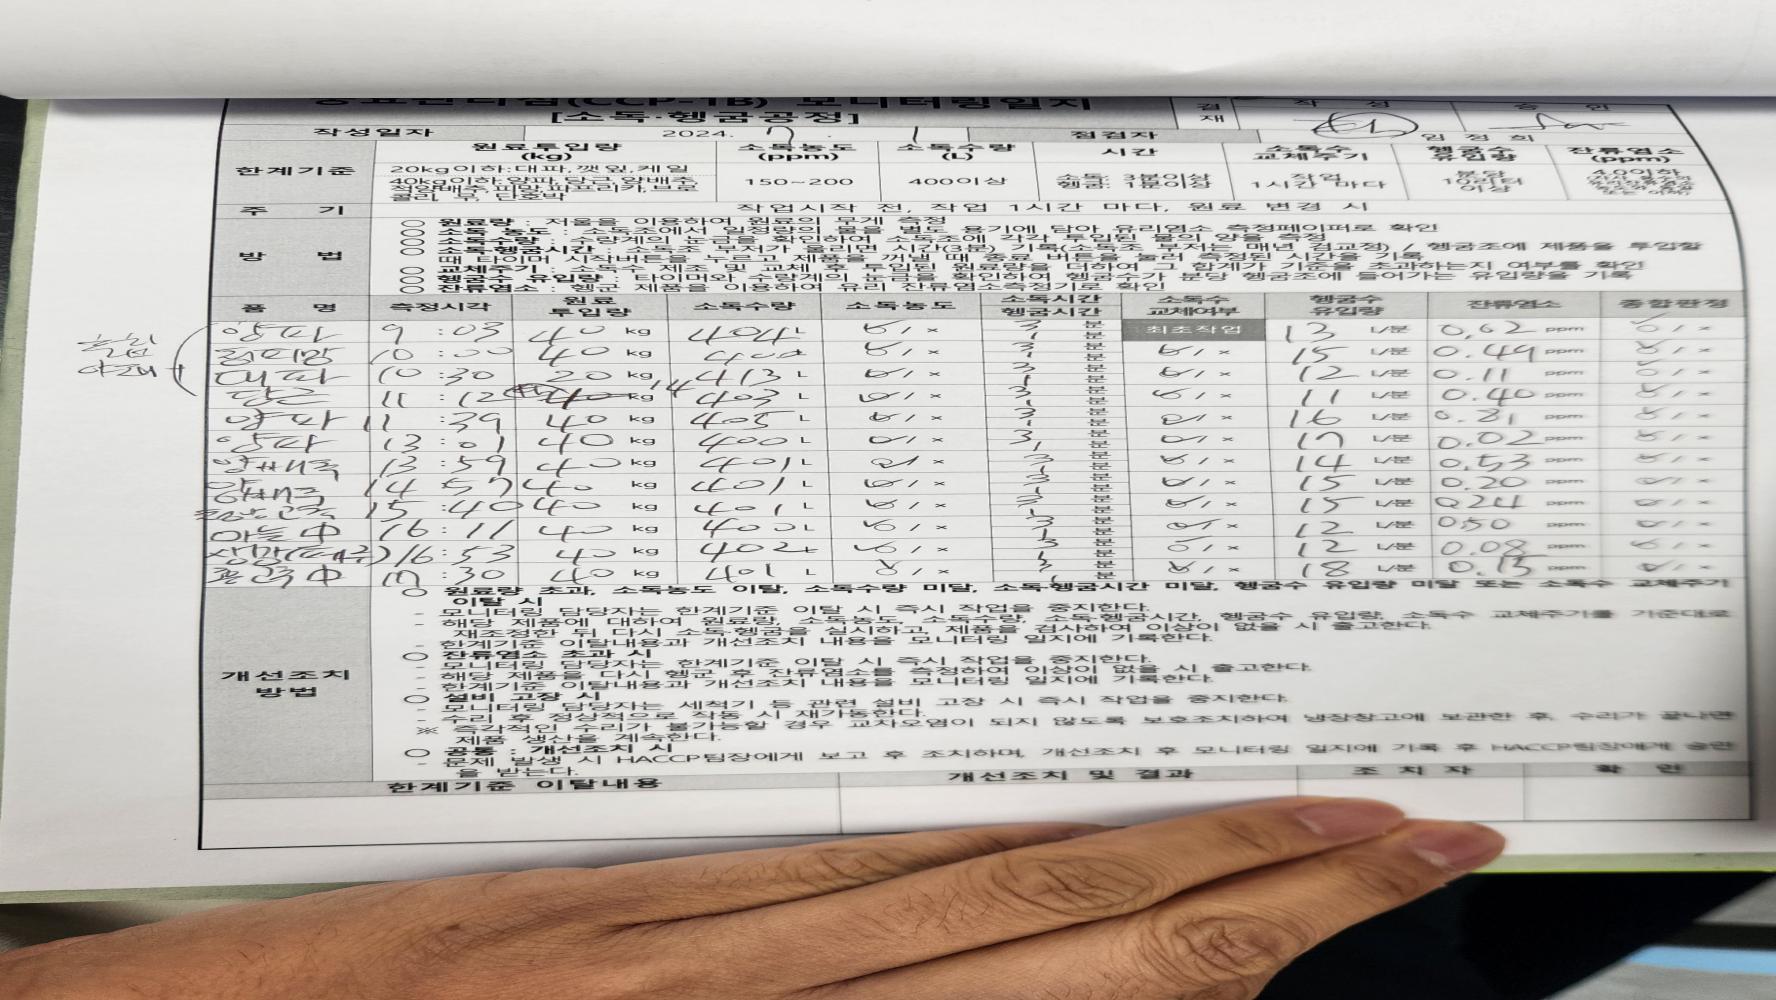 중요관리점(CCP-1B) 모니터링일지
[소독·헹굼공정]
결재 작 성 승 인
작성일자 2024. 7. 1 점검자 임 정 희
한계기준
원료투입량 (kg) 소독농도 (ppm) 소독수량 (L) 시간 소독수 교체주기 헹굼수 유입량 잔류염소 (ppm)
20kg이하:대파,깻잎,케일
40kg이하:양파,당근,양배추
적양배추,피망,파프리카,브로
콜리, 무, 단호박
150~200 400이상 소독: 3분이상 헹굼: 1분이상 작업 1시간 마다 분당 10리터 이상 4.0이하
주 기 작업시작 전, 작업 1시간 마다, 원료 변경 시
방 법
○ 원료량 : 저울을 이용하여 원료의 무게 측정
○ 소독 농도 : 소독조에서 일정량의 물을 별도 용기에 담아 유리염소 측정페이퍼로 확인
○ 소독수량 : 수량계의 눈금을 확인하여 소독조에 각각 투입된 물의 양을 측정
○ 소독·헹굼시간 : 소독조 부저가 울리면 시간(3분) 기록(소독조 부저는 매년 검교정) / 헹굼조에 제품을 투입할
때 타이머 시작버튼을 누르고 제품을 꺼낼 때 종료 버튼을 눌러 측정된 시간을 기록
○ 교체주기 : 소독수 제조 및 교체 후 투입된 원료량을 더하여 그 합계가 기준을 초과하는지 여부를 확인
○ 헹굼수 유입량 : 타이머와 수량계의 눈금을 확인하여 헹굼수가 분당 헹굼조에 들어가는 유입량을 기록
○ 잔류염소 : 헹군 제품을 이용하여 유리 잔류염소측정기로 확인
품 명 측정시각 원료 투입량 소독수량 소독농도 소독시간 헹굼시간 소독수 교체여부 헹굼수 유입량 잔류염소 종합판정
양파 9 :03 40 kg 404 L ○ / × 3 분 1 분 최초작업 13 L/분 0.62 ppm ○ / ×
10 :00 40 kg 400 L ○ / × 3 분 1 분 ○ / × 15 L/분 0.49 ppm ○ / ×
대파 10 :30 20 kg 413 L ○ / × 3 분 1 분 ○ / × 12 L/분 0.11 ppm ○ / ×
당근 11 :12 40 kg 14 403 L ○ / × 3 분 1 분 ○ / × 11 L/분 0.40 ppm ○ / ×
양파 11 :39 40 kg 405 L ○ / × 3 분 1 분 ○ / × 16 L/분 0.81 ppm ○ / ×
양파 13 :01 40 kg 400 L ○ / × 3 분 1 분 ○ / × 17 L/분 0.02 ppm ○ / ×
양배추 13 :59 40 kg 401 L ○ / × 3 분 1 분 ○ / × 14 L/분 0.53 ppm ○ / ×
양배추 14 :57 40 kg 401 L ○ / × 3 분 1 분 ○ / × 15 L/분 0.20 ppm ○ / ×
15 :40 40 kg 401 L ○ / × 3 분 1 분 ○ / × 15 L/분 0.24 ppm ○ / ×
마늘中 16 :11 40 kg 400 L ○ / × 3 분 1 분 ○ / × 12 L/분 0.50 ppm ○ / ×
16 :53 40 kg 402 L ○ / × 3 분 1 분 ○ / × 12 L/분 0.08 ppm ○ / ×
17 :30 40 kg 401 L ○ / × 3 분 1 분 ○ / × 18 L/분 0.15 ppm ○ / ×
개선조치 방법
○ 원료량 초과, 소독농도 이탈, 소독수량 미달, 소독·헹굼시간 미달, 헹굼수 유입량 미달 또는 소독수 교체주기
이탈 시
- 모니터링 담당자는 한계기준 이탈 시 즉시 작업을 중지한다.
- 해당 제품에 대하여 원료량, 소독농도, 소독수량, 소독·헹굼시간, 헹굼수 유입량, 소독수 교체주기를 기준대로
재조정한 뒤 다시 소독·헹굼을 실시하고, 제품을 검사하여 이상이 없을 시 출고한다.
- 한계기준 이탈내용과 개선조치 내용을 모니터링 일지에 기록한다.
○ 잔류염소 초과 시
- 모니터링 담당자는 한계기준 이탈 시 즉시 작업을 중지한다.
- 해당 제품을 다시 헹군 후 잔류염소를 측정하여 이상이 없을 시 출고한다.
- 한계기준 이탈내용과 개선조치 내용을 모니터링 일지에 기록한다.
○ 설비 고장 시
- 모니터링 담당자는 세척기 등 관련 설비 고장 시 즉시 작업을 중지한다.
- 수리 후 정상적으로 작동 시 재가동한다.
※ 즉각적인 수리가 불가능할 경우 교차오염이 되지 않도록 보호조치하여 냉장창고에 보관한 후, 수리가 끝나면
제품 생산을 계속한다.
○ 공통 : 개선조치 시
- 문제 발생 시 HACCP팀장에게 보고 후 조치하며, 개선조치 후 모니터링 일지에 기록 후 HACCP팀장에게 승인
을 받는다.
한계기준 이탈내용 개선조치 및 결과 조 치 자 확 인